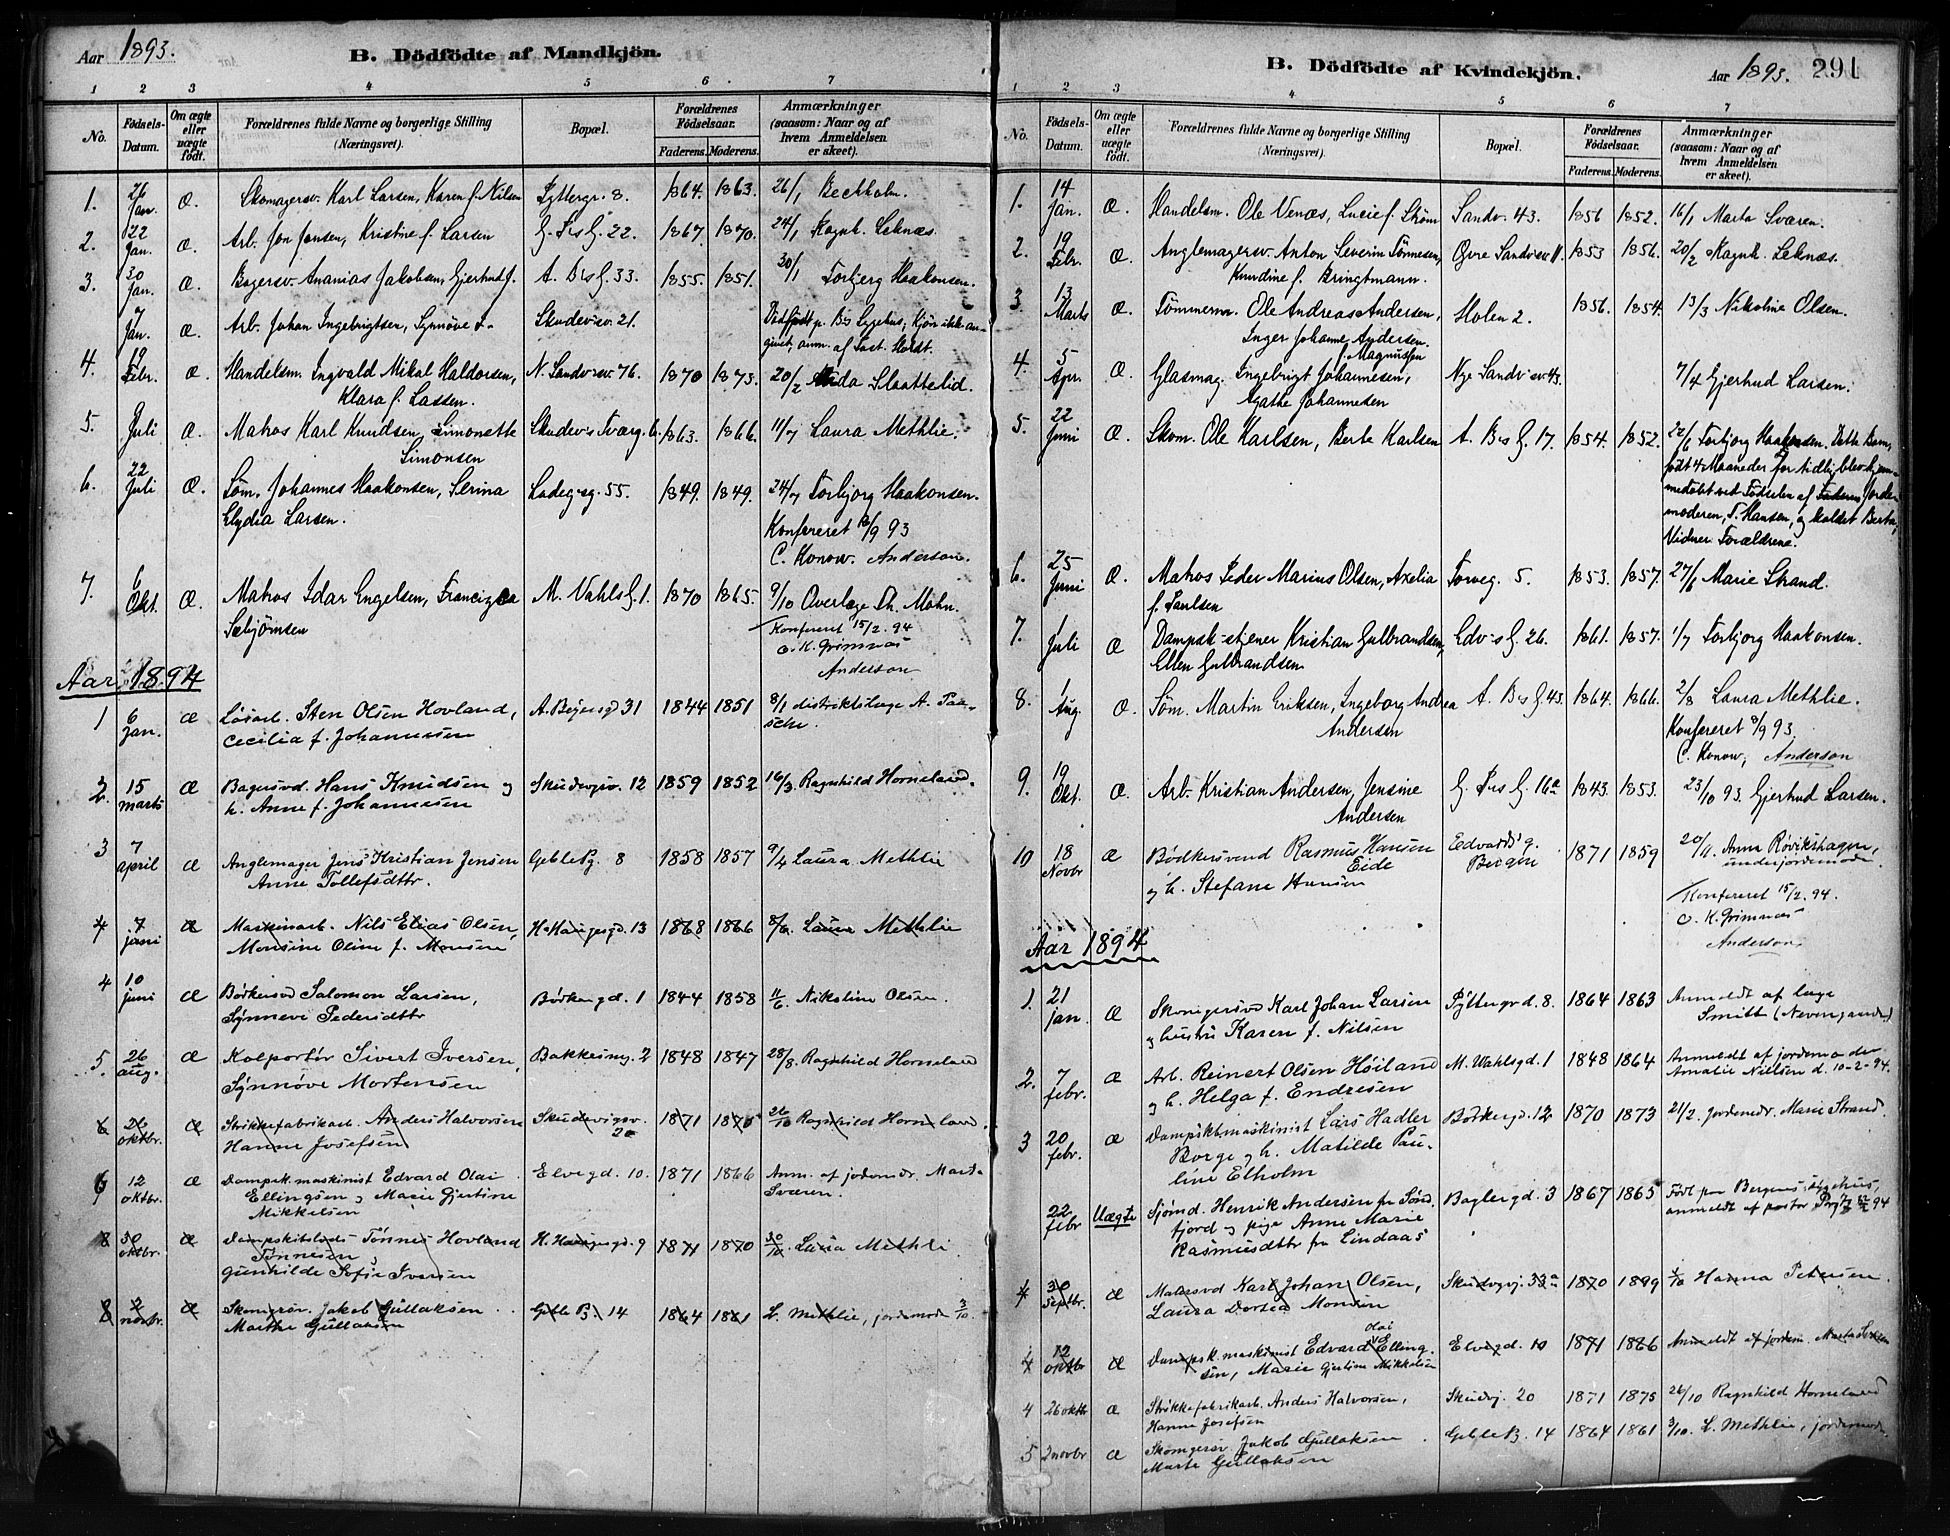 Aar 1893.
B. Dödfödte af Mandkjön.
1 2 3 4 5 6 7
No.
Födsels-Datum.
Om ægte eller uægte født.
Forældrenes fulde Navne og borgerlige Stilling
(Næringsvei).
Bopæl.
Forældrenes Födselsaar.
Faderens. Moderens.
Anmærkninger
(saasom: Naar og af
hvem Anmeldelsen
er skeet).
1. 26 Jan. Æ. Skomagersv. Karl Larsen, Karen f. Nilsen Pyttergr. 8. 1864. 1863. 26/1 Beckholm.
2. 22 Jan. Æ. Arb. Jon Jonsen, Kristine f. Larsen 22. 1867. 1870. 24/1 Ragnh. Leknæs.
3. 30 Jan. Æ. Bagersv. Ananias Jakobsen, Gjertrud f. A. B's G. 33. 1855. 1851. 30/1 Torbjørg Haakonsen.
7 Jan. Æ. Arb. Johan Ingebrigtsen, Synnøve Skudevsv. 21. Dødfødt p. B's Sygehus, Kjön ikke an-
givet, anm. af Past. Holdt.
4. 19 Febr. Æ. Handelsm. Ingvald Mikal Haldorsen, N. Sandvsv. 76. 1870 1873. 20/2 Slaattelid.
Klara f. Lassen.
5. Juli Æ. Matros Karl Knudsen, Simonette Skudevs Tværg. 6. 1863. 1866. 11/7 Laura Methlie.
Simonsen
6. 22 Juli Æ. Søm. Johannes Haakonsen, Serina Ladeg.sg. 55. 1849. 1849. 24/7 Torbjørg Haakonsen.
Elydia Larsen. Konfereret 8/9 93
C. Konow. Anderson.
7. 6 Okt. Æ. Matros Idar Engelsen, Francizca M. Vahls G. 1. 1870 1865. 9/10 Overlæge Dh. Mohn.
Sebjørnsen Konfereret 15/2. 94
o. K. Grimnæs
Anderson
Aar 1894
1 6 Jan. Æ Løsarb. Sten Olsen Hovland, A. Bejersgd 31 1844 1851 8/1 distriktslæge A. Paa-
Cecilia f. Johannesen sche
2. 15 marts Æ Bagersvd. Hans Knudsen og Skudevigsv. 12 1859 1852 16/3 Ragnhild Horneland.
h. Anne f. Johannesen
3 7 april Æ Anglemager Jens Kristian Jensen Geble Pg. 8 1858 1857 9/4 Laura Methlie
Anne Tollefsdttr.
4 7 juni Æ Maskinarb. Nils Elias Olsen, H. Haugesgd. 13 1868 1866 8/6. Laura Methlie
Monsine Oline f. Monsen
4 10 juni Æ Bødkersvd Salomon Larsen, Bødkergd. 1 1844 1858 11/6. Nikoline Olsen.
Synnevi Pedersdttr
5. 26 aug. Æ Kolportør Sivert Iversen, Bakkesmg. 2 1848 1847 28/8. Ragnhild Horneland
Synnøve Mortensen
6 26 oktbr. Æ Strikkefabrikarb. Anders Halvorsen Skudevigsv. 20 1871 1875 26/10 Ragnhild Horneland.
Hanne Josefsen
6 12 oktbr. Æ Dampsk. maskinist Edvard Olai Elvegd. 10. 1871 1866 Anm. af jodemdr. Marta
Ellingsen og Marie Gjertine Sværen.
Mikkelsen
8 30 oktbr. Æ Dampskibsleds Tønnes Hovland H. Haugesgd. 9 1871 1870 30/10. Laura Methli.
Tønnesen,
Gunhilde Sofie Iversen
8 2 novbr. Æ Skomgrsv. Jakob Gullaksen Geble B. 14 1864 1861 L. Methlie, jordemoder 3/10.
Marthe Gullaksen
B. Dödfödte af Kvindekjön.
Aar 1893. 291
1 2 3 4 5 6 7
No.
Födsels-Datum.
Om ægte eller uægte födt.
Forældrenes fulde Navne og borgerlige Stilling
(Næringsvei).
Bopæl.
Forældrenes Födselsaar.
Faderens. Moderens.
Anmærkninger
(saasom: Naar og af
hvem Anmeldelsen
er skeet).
1. 14 Jan. Æ. Handelsm. Ole Venæs, Lucie f. Strøm Sandv. 43. 1856 1852. 16/1 Marta Sværen.
2. 19 Febr. Æ. Anglemagersv. Anton Severin Tønnesen, Øvre Sandvsv. 1853 1856. 20/2 Ragnh. Leknæs.
Knudine f. Bringtmann.
3 13 Marts Æ. Tømmerm. Ole Andreas Andersen, Holen 2. 1856. 1854. 13/3 Nikoline Olsen.
Inger Johanne Andersen.
f. Magnussen
4. 5 Apr. Æ. Glasmag. Ingebrigt Johannesen, Nye Sandvsv. 43. 7/4 Gjertrud Larsen.
Agathe Johannesen
5. 22 Juni Æ. Skom. Ole Karlsen, Berte Karlsen A. B's G. 17. 1854. 1852. 22/6 Torbjørg Haakonsen. Dette Barn,
født 4 Maaneder for tidlig blev hjem-
medøbt ved Fødselen af Jorde-
moderen, T. Hansen, og kaldet Berta,
Vidner Forældrene.
6. 25 Juni Æ. Matros Peder Marius Olsen, Axelia Torveg. 5. 1853. 1857. 27/6 Marie Strand.
f. Paulsen
7. 1 Juli Æ Dampsk-stjener Kristian Gulbrandsen, Edv's G. 26. 1861. 1857. 1/7 Torbjørg Haakonsen.
Ellen Gulbrandsen
8. 1 Aug. Æ. Søm. Martin Eriksen, Ingeborg Andrea A. B's G. 43. 1864. 1866. 2/8 Laura Methlie.
Andersen Konfereret 8/9 93
C. Konow, Anderson
9. 19 Okt. Æ. Arb. Kristian Andersen, Jensine 16a 1843. 1853. 23/10 93. Gjertrud Larsen.
Andersen
10 18 Novbr Æ Bødkersvend Rasmus Hansen Eide Edvards g. Bergen 1871 1859 20/11. Anna Røvikshagen,
og h. Stefane Hansen underjordemoder.
Konfereret 15/2. 94.
o. K. Grimnæs
Anderson
Aar 1894
1. 21 jan. Æ Skomgersvd Karl Johan Larsen Pyttergrd. 8. 1864 1863 Anmeldt af læge
og hustru Karen f. Nilsen Smitt (Nevengaarden)
2. 7 febr. Æ Arb. Reinert Olsen Høiland M. Wahlsgd. 1 1848 1864 Anmeldt af jordemoder
og h. Helga f. Endresen Amalie Nielsen d. 10-2-94.
3 20 febr. Æ Dampskbmaskinist Lars Hadler Bødkergd. 12 1870 1873 21/2. jordemdr. Marie Strand.
Borge og h. Matilde Pau-
line Elholm
22 febr Uægte Sjømd. Henrik Andersen fra Sønd. Baglergd. 3 1867 1865 Født paa Bergens sygehus,
fjord og pige Anne Marie anmeldt af pastor 94
Rasmusdttr fra Lindaas
4 30 septbr. Æ Malersvd Karl Johan Olsen, Skudvgvj. 33a 1870 1899 1/10 Hanna Petersen.
Laura Dortea Monsen
4 12 oktbr Æ Dampsk. maskinist Edvard Olai Elling- Elvegd. 10 1871 1866 Anmeldt af jordem. Marta Sværen
sen, Marie Gjertine Mikkelsen
4 26 oktbr Æ Strikkefabrikarb. Anders Halvorsen, Skudvj. 20 1871 1875 26/10 Ragnhild Horneland
Hanne Josefsen
5 2 novbr Æ Skomgersv. Jakob Gullaksen Geble B. 14 1864 1861 3/10. L. Methlie, jordemoder.
Marte Gullaksen